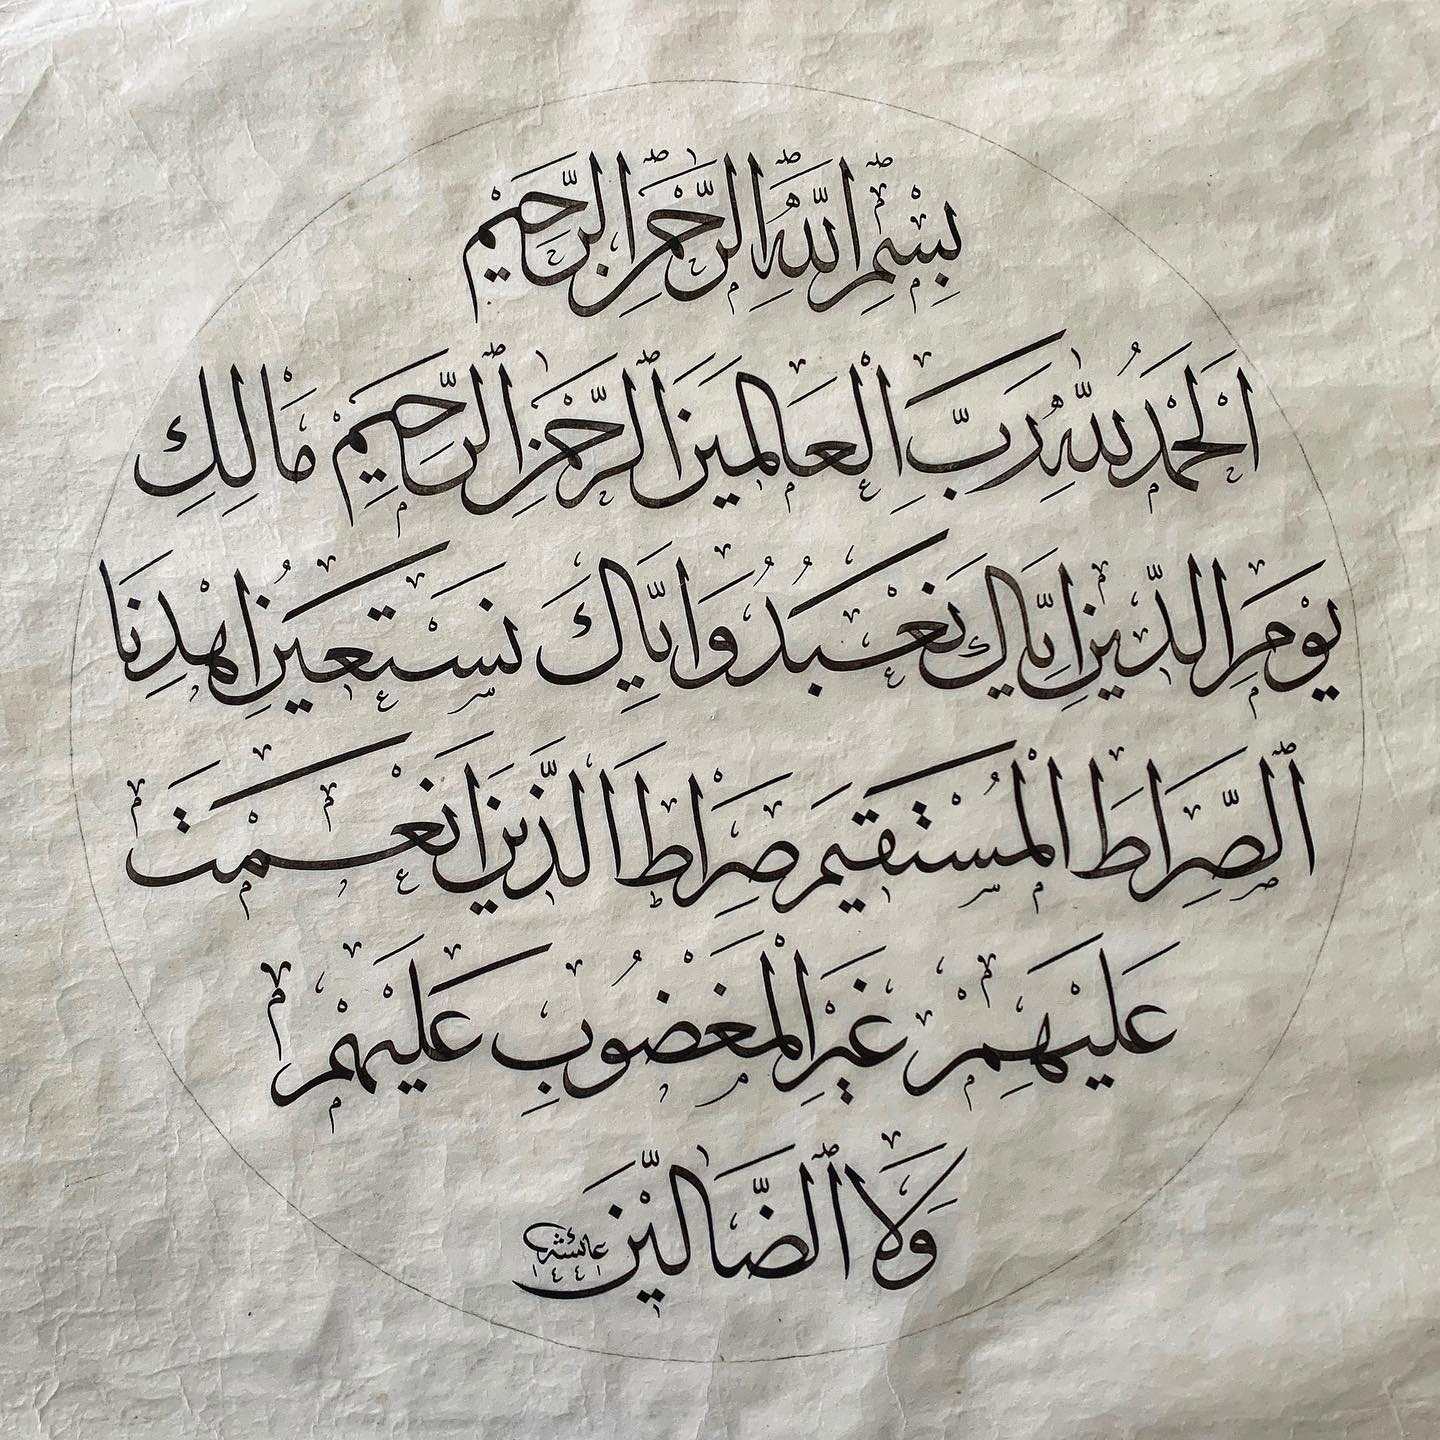 بِسْمِ اللّٰهِ الرَّحْمٰنِ الرَّحِيْمِ
اَلْحَمْدُ لِلّٰهِ رَبِّ الْعَالَمِيْنَ الرَّحْمٰنِ الرَّحِيْمِ مَالِكِ
يَوْمِ الدِّيْنِ اِيَّاكَ نَعْبُدُ وَاِيَّاكَ نَسْتَعِيْنُ اِهْدِنَا
الصِّرَاطَ الْمُسْتَقِيْمَ صِرَاطَ الَّذِيْنَ اَنْعَمْتَ
عَلَيْهِمْ غَيْرِ الْمَغْضُوْبِ عَلَيْهِمْ
وَلَا الضَّالِّيْنَ
عائشة
١٤٤١